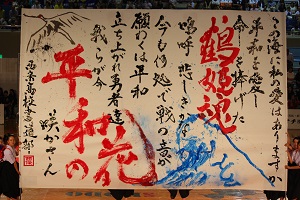 この海に私の愛はありますか
平和を愛し
命を捧げた
鶴姫魂
嗚呼 悲しきかな
今も何処で戦の音が
願わくは平和
立ち上がれ勇者達
我らが今
平和の花
咲かさん
西条高校書道部